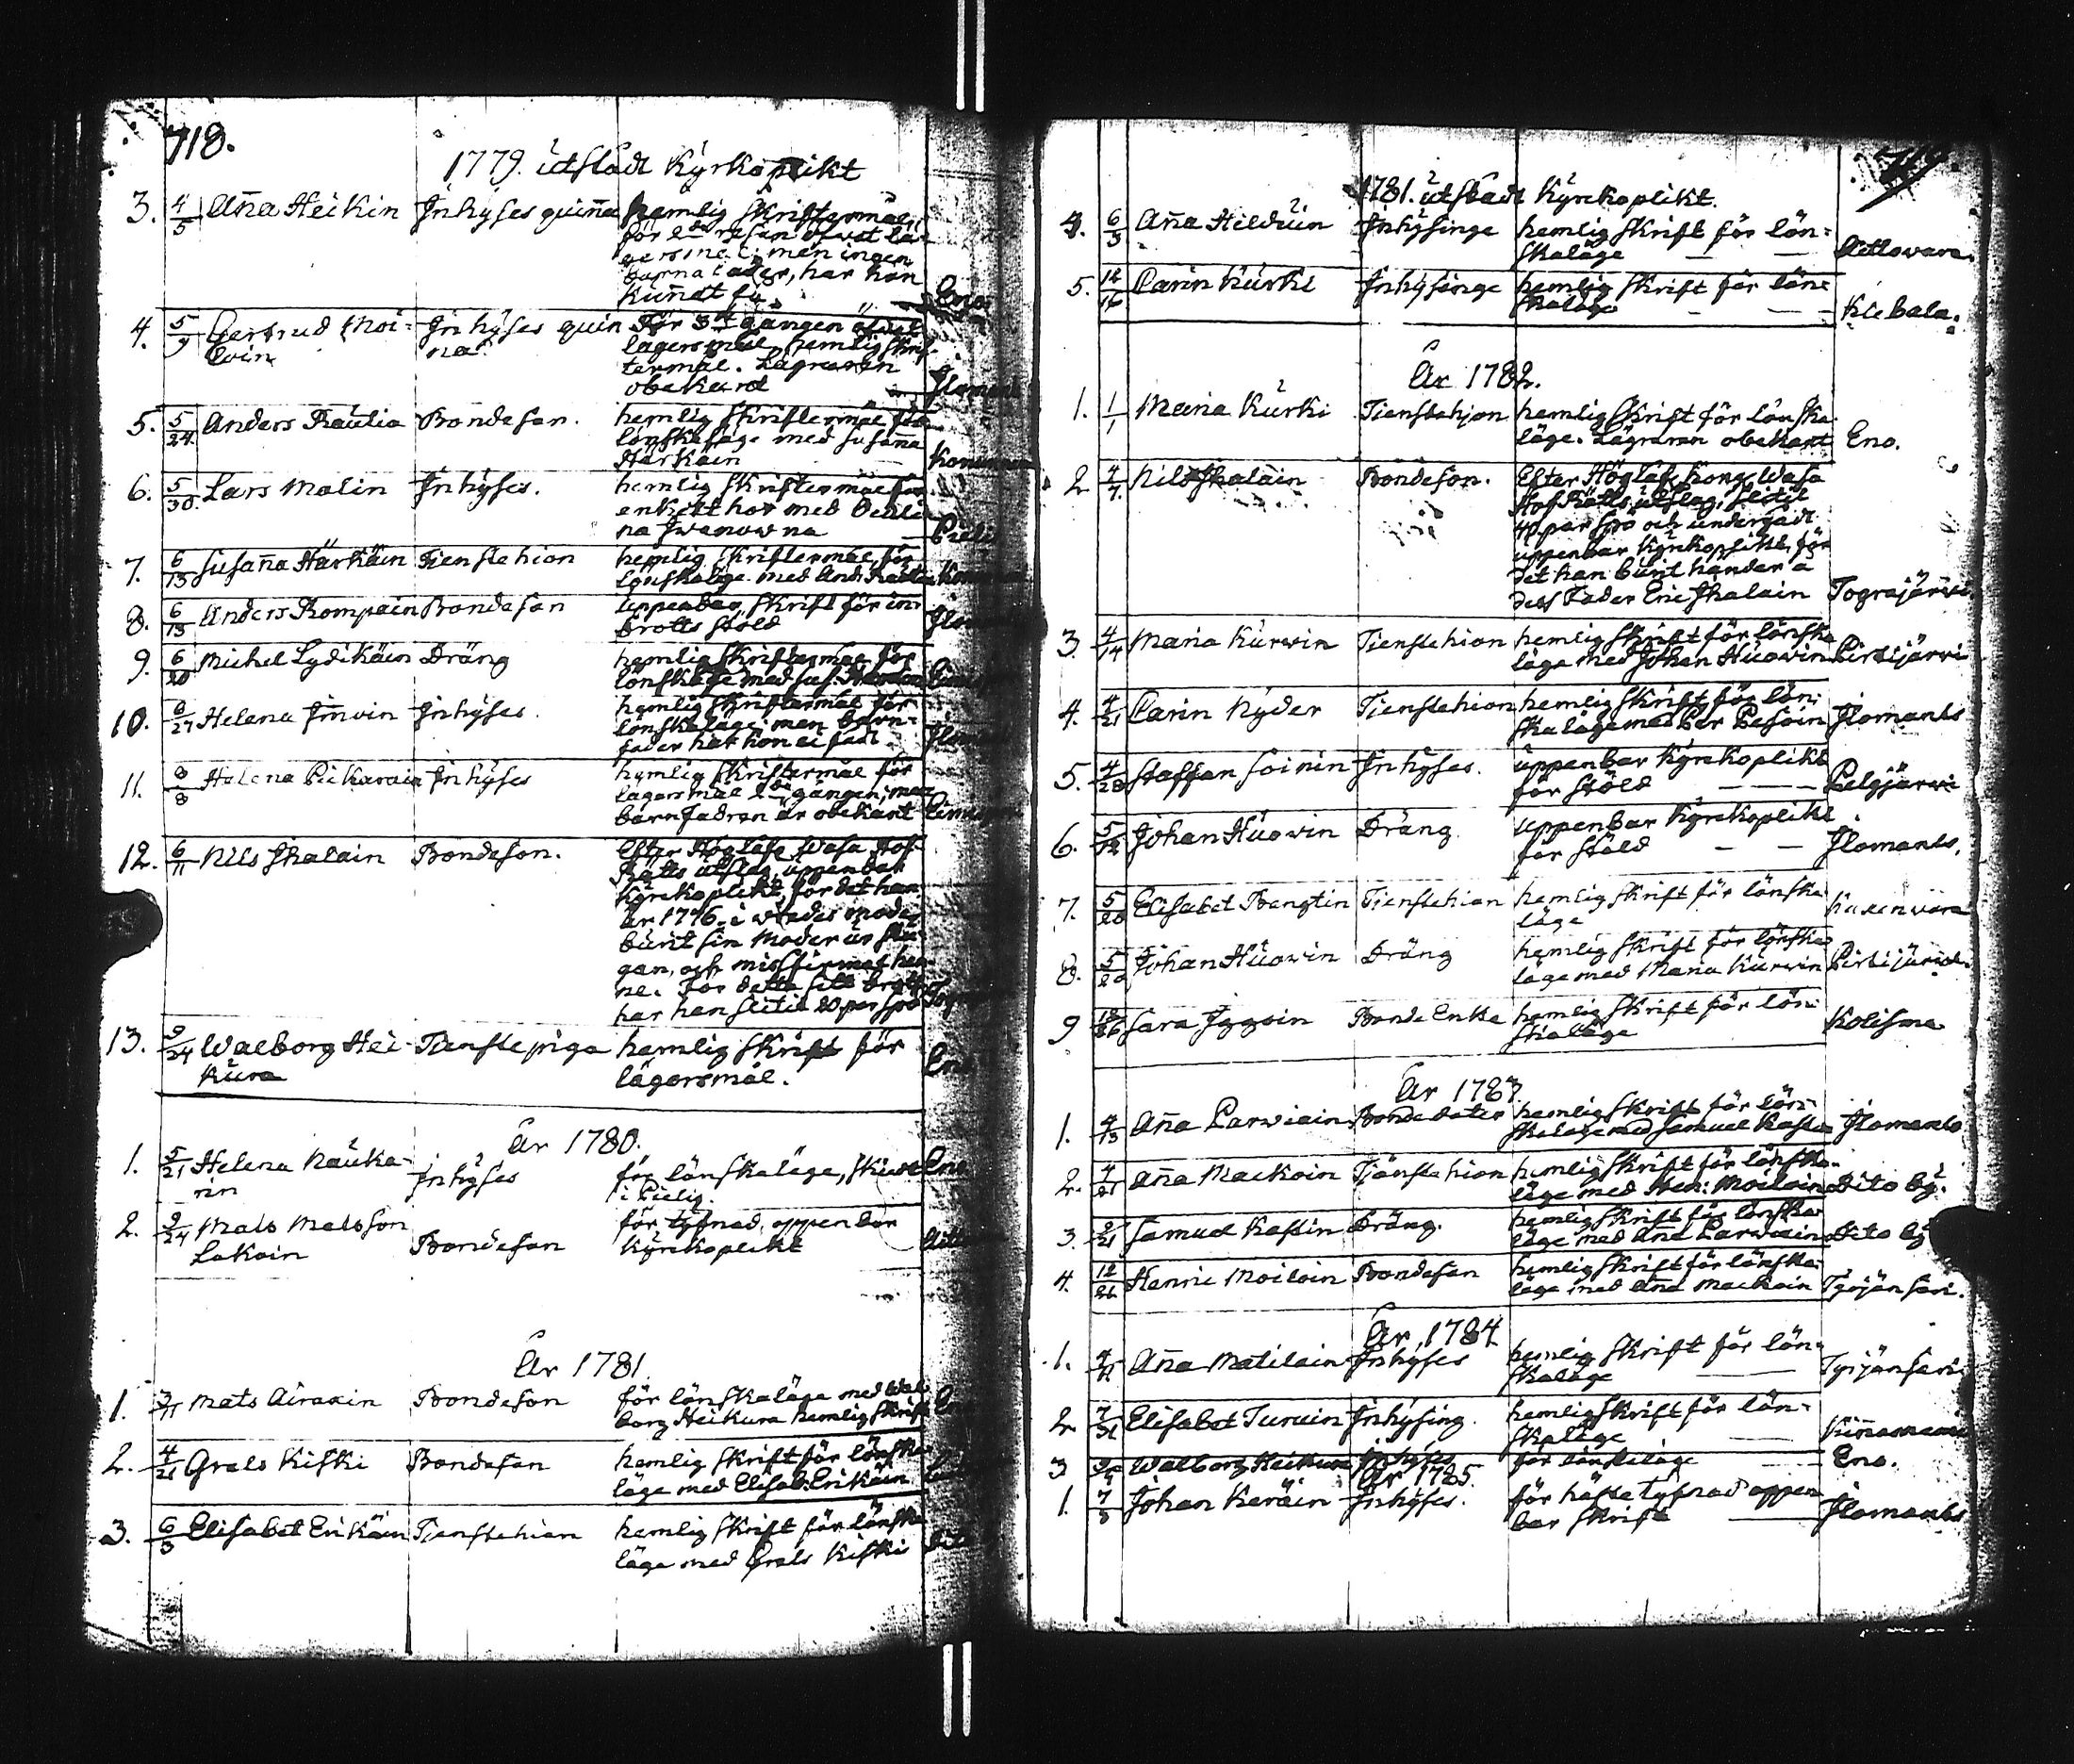 718.
1779. utstådt Kyrkoplikt
3. 4/5 Anna Heikin Inhyses quinna hemlig skriftermål,
för 2dra resan öfwat lä-
gersmål; men ingen
barnafader, har hon
kunnat få. Eno
4. 5/9 Gertrud Moi- Inhyses quin För 3die gången öfwat
loin na lägersmål, hemlig skrif-
termål. Lägraren
obekand Ilomants
5. 5/24 Anders Rautio Bondeson. hemlig skriftermål för
lönskaläge med Susanna
Härkäin
6. 5/30. Lars Malin Inhyses. hemlig skriftermål för
enkelt hor med
na Iwanowna Pielis
7. 6/13 Susanna Härkäin Tienstehion hemlig skriftermål för
lönskaläge med And: Rautio
8. 6/13 Anders Rompain Bondeson uppenbar skrift för in-
brotts stöld
9. 6/20 Michel Lydikäin Dräng hemlig skriftermål för
lönskaläge med
10. 6/27 Helena Immoin Inhyses. hemlig skriftermål för
lönskaläge; men barn-
fader har hon ei fådt
11. 8/8 Helena Pickarain Inhyses hemlig skriftermål för
lägersmål 2dra gången; men
barnfadren är obekant
12. 6/11 Nils Ikalain Bondeson. Efter Höglofl. Wasa Hof-
Rätts utslag, uppenbar
Kyrkoplikt, för det han
år 1776. i wredes mode
burit sin Moder ur stu-
gan, och missfirmat hen-
ne. För detta sitt brott
har han slitit 20 par spö
13. 9/24 Walborg Hei- Tienstepiga hemlig skrift för
kura lägersmål. Eno
År 1780.
1. 5/21 Helena Nauka- Inhyses för lönskaläge, Eno
rin i Pielis.
2. 9/24 Mats Matsson för tyfnad, oppenbar
Lakoin Bondeson Kyrkoplikt
År 1781.
1. 3/11 Mats Airaxin Bondeson för lönskaläge med Wal-
borg Heikura hemlig skrift
2. 4/21 Grels Kiski Bondeson hemlig skrift för lönska
läge med Elisab: Erikäin
3. 6/3 Elisabet Erikäin Tienstehion hemlig skrift för lönska
läge med Grels Kiski
1781. utstådt Kyrkoplikt.
4. 6/3 Anna Hilduin Inhysinge hemlig skrift för lön-
skaläge
5. 12/16 Carin Kurki Inhysinge hemlig skrift för lön-
skaläge
År 1782.
1. 1/1 Maria Kurki Tienstehjon hemlig skrift för lönska
läge. Lägraren obekant Eno.
2 4/7. Nils Ikalain Bondeson. Efter Höglofl. Kongl. Wasa
Hof Rätts utslag, slitit
40 par spö och undergådt
uppenbar Kyrkoplikt, för
det han burit händer å
dess Fader Eric Ikalain
3. 4/14 Maria Kurwin Tienstehion hemlig skrift för lönska
läge med Johan Huowin
4. 4/21 Carin Ryder Tienstehion hemlig skrift för lön-
skaläge med Per Pesoin Ilomants
5. 4/28 Staffan Soinin Inhyses. uppenbar Kyrkoplikt
för stöld Pelgjärwi
6. 5/12 Johan Huowin Dräng uppenbar Kyrkoplikt
för stöld Ilomants,
7. 5/20 Elisabet Bengtin Tienstehion hemlig skrift för lönska
läge
8. 5/20 Johan Huowin Dräng hemlig skrift för lönska
läge med Maria Kurwin
9 12/26 Sara Iggoin Bonde Enka hemlig skrift för lön-
skaläge Kolisma
År 1783.
1. 4/13 Anna Parwiain Bondedoter hemlig skrift för lön-
skaläge med Samuel Kastin Ilomants
2. 4/21 Anna Mackoin Tjänstehion hemlig skrift för lönska-
läge med Hen: Moilain Dito by.
3. 4/21 Samuel Kastin Dräng. hemlig skrift för lönska
läge med Ana Parwiain Dito by
4. 12/26 Henric Moiloin Bondeson hemlig skrift för lönska-
läge med Ana Mackoin
År 1784
1. Anna Matilain Inhyses hemlig skrift för lön-
skaläge
2 7/31 Elisabet Turuin Inhysing. hemlig skrift för lön-
skaläge
3 Walborg Heikura Inhyses för lönskaläge Eno.
År 1785.
1. 7/3 Johan Keräin Inhyses. för häste tyfnad oppen
bar skrift Ilomants